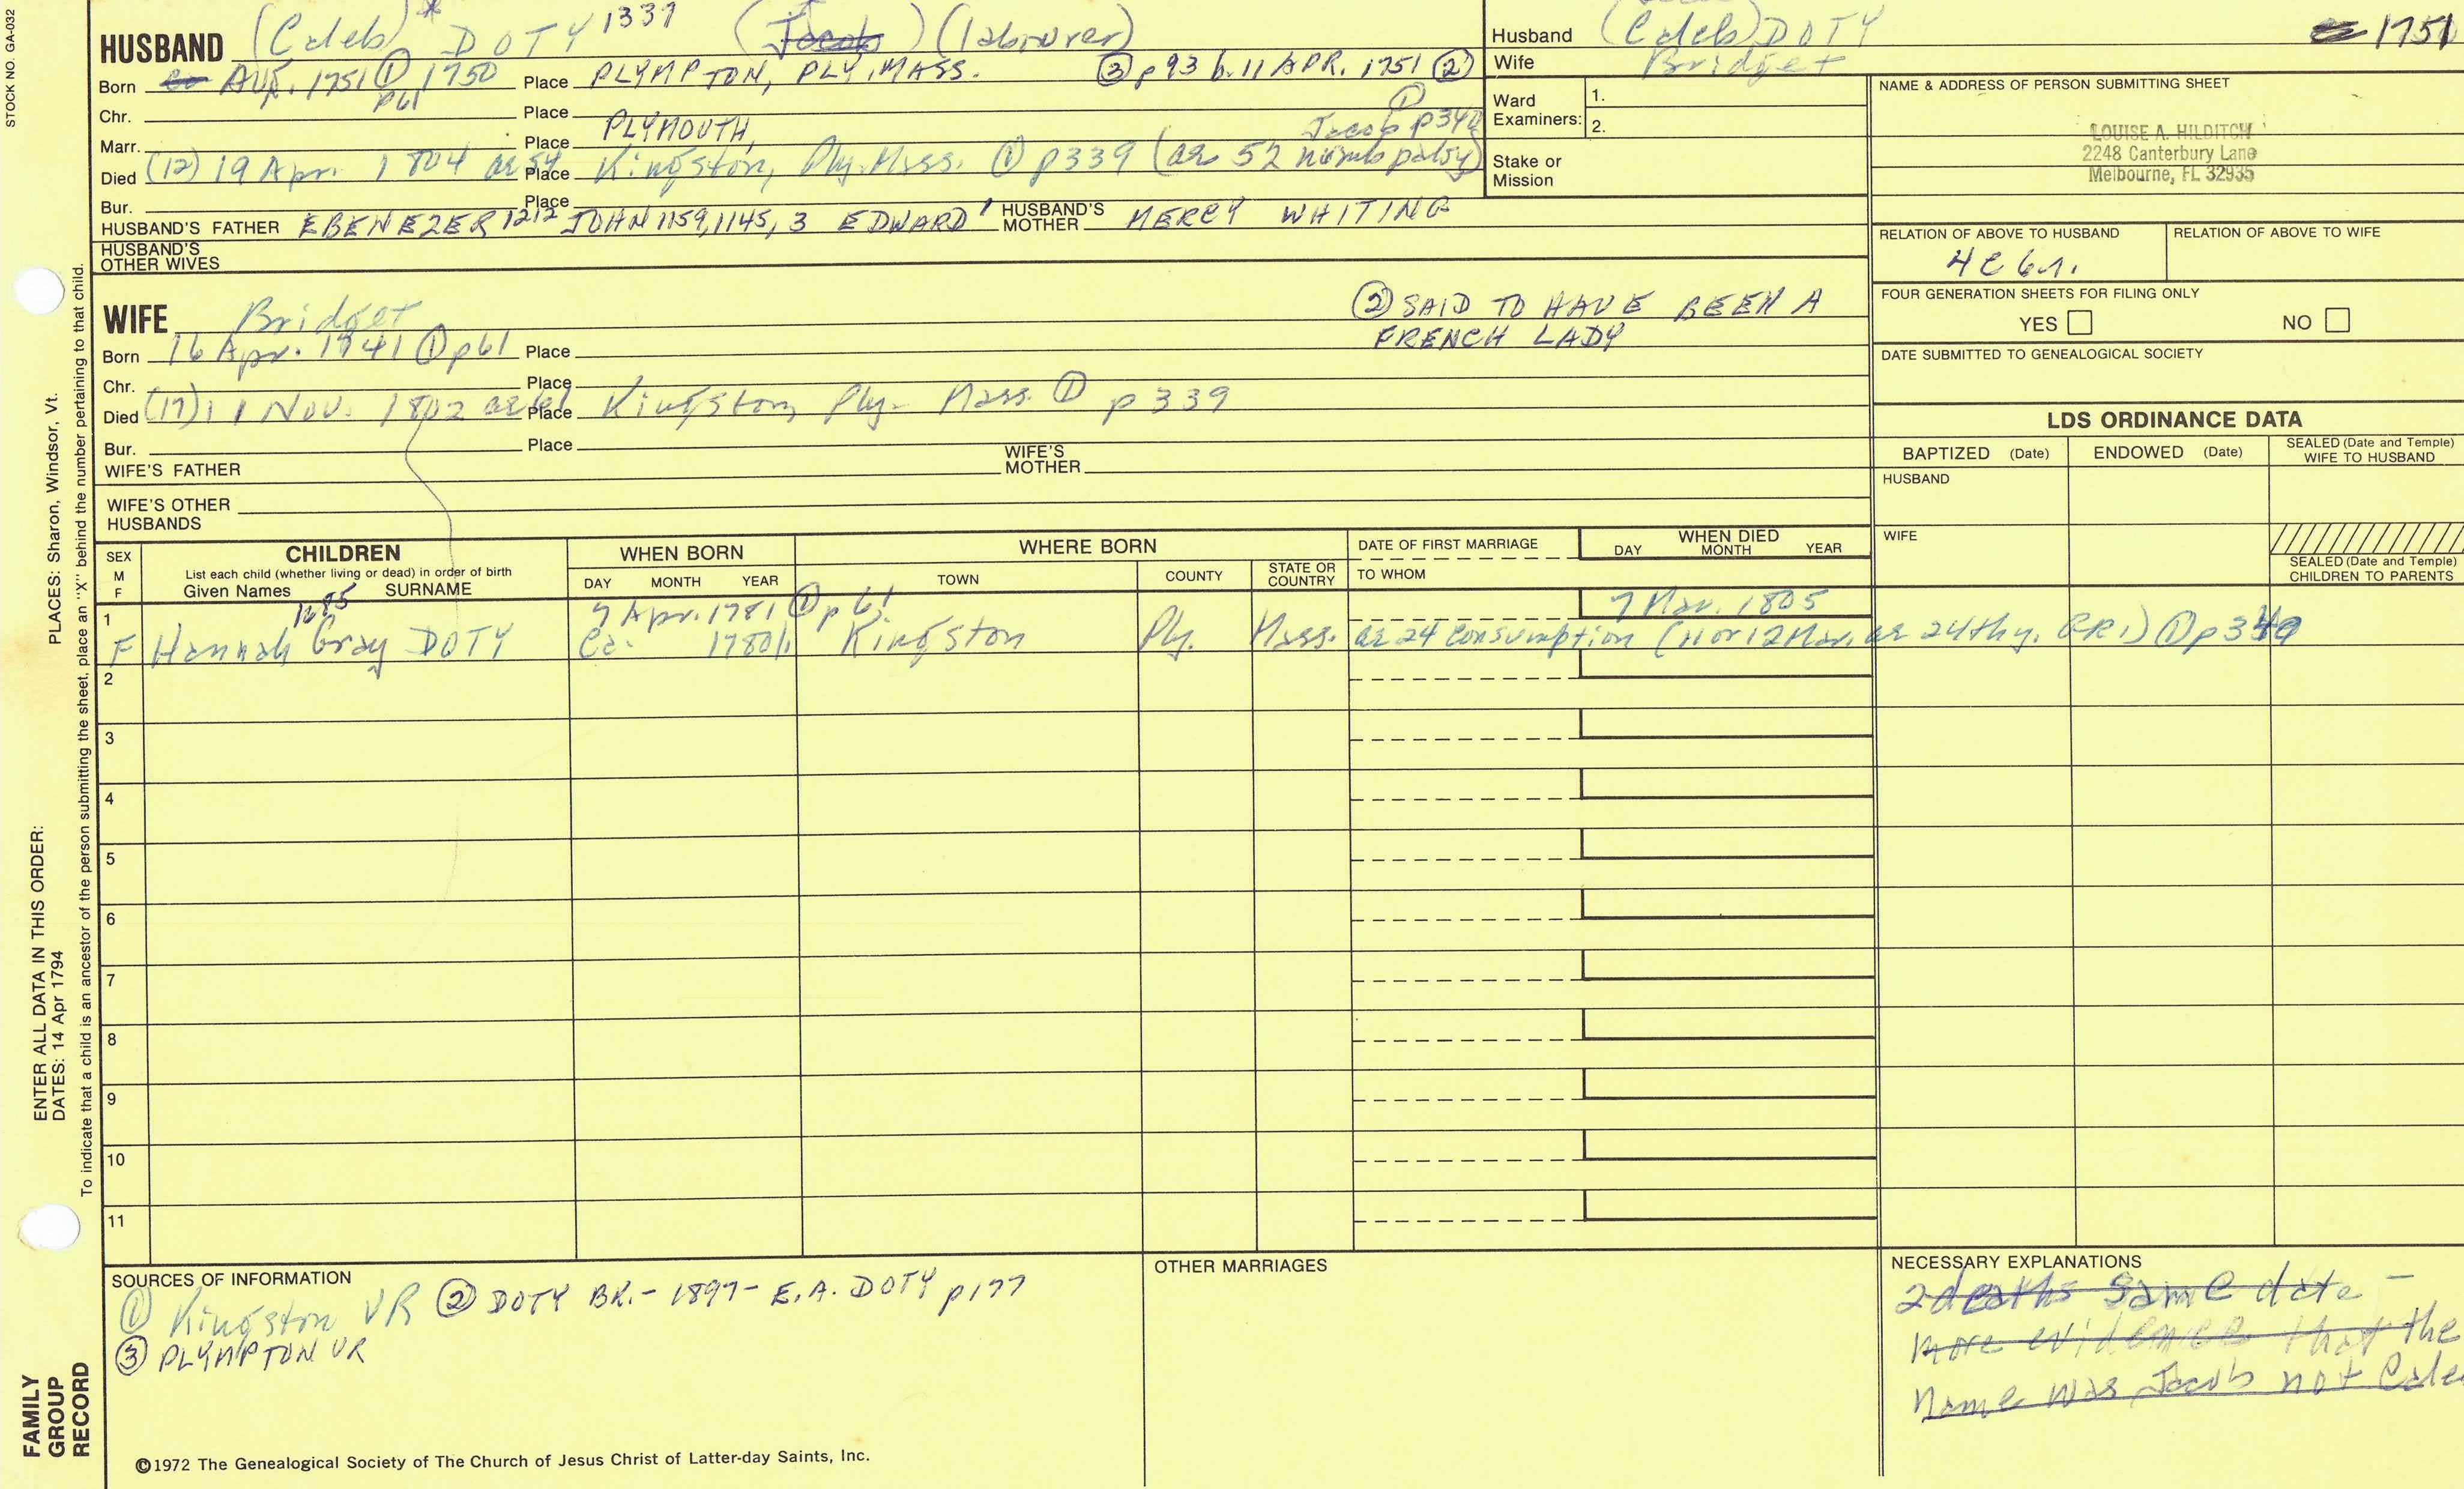 STOCK NO. GA-032
HUSBAND (Caleb)* DOTY 1339 (Jacob) (labourer)
Born Ca AUG. 1751 ① p61 1750 Place PLYMPTON, PLY, MASS. ③ p93 b. 11 APR. 1751 ②
Chr. Place
Marr. Place PLYMOUTH, Jacob p340 ①
Died (12) 19 Apr. 1804 ae 54 Place Kingston, Ply. Mass. ① p339 (ae 52 numb palsy)
Bur. Place
HUSBAND'S FATHER EBENEZER 1212 JOHN 1159, 1145, 3 EDWARD 1 HUSBAND'S MOTHER MERCY WHITING
HUSBAND'S OTHER WIVES
WIFE Bridget
② SAID TO HAVE BEEN A
FRENCH LADY
Born 16 Apr. 1741 ① p61 Place
Chr. Place
Died (17) 11 Nov. 1802 ae 61 Place Kingston, Ply. Mass. ① p339
Bur. Place
WIFE'S FATHER WIFE'S MOTHER
WIFE'S OTHER HUSBANDS
Husband (Caleb) DOTY 1751
Wife Bridget
Ward Examiners: 1.
2.
Stake or Mission
NAME & ADDRESS OF PERSON SUBMITTING SHEET
LOUISE A. HILDITCH
2248 Canterbury Lane
Melbourne, FL 32935
RELATION OF ABOVE TO HUSBAND RELATION OF ABOVE TO WIFE
4C 6r.
FOUR GENERATION SHEETS FOR FILING ONLY
YES NO
DATE SUBMITTED TO GENEALOGICAL SOCIETY
LDS ORDINANCE DATA
BAPTIZED (Date) ENDOWED (Date) SEALED (Date and Temple) WIFE TO HUSBAND
HUSBAND
WIFE
SEALED (Date and Temple) CHILDREN TO PARENTS
SEX M F
CHILDREN
List each child (whether living or dead) in order of birth
Given Names SURNAME
WHEN BORN
DAY MONTH YEAR
WHERE BORN
TOWN COUNTY STATE OR COUNTRY
DATE OF FIRST MARRIAGE
TO WHOM
WHEN DIED
DAY MONTH YEAR
1 7 Apr. 1781 ① p61 7 Mar. 1805
F Hannah Gray DOTY Ca. 1780/1 Kingston Ply. Mass. ae 24 consumption (11 or 12 Mar. ae 24th y. CR1) ① p340
2
3
4
5
6
7
8
9
10
11
SOURCES OF INFORMATION
① Kingston VR ② DOTY BK. - 1897 - E.A. DOTY p177
③ PLYMPTON VR
OTHER MARRIAGES
NECESSARY EXPLANATIONS
2 deaths same date -
more evidence that the
name was Jacob not Cale
©1972 The Genealogical Society of The Church of Jesus Christ of Latter-day Saints, Inc.
PLACES: Sharon, Windsor, Vt.
ENTER ALL DATA IN THIS ORDER:
DATES: 14 Apr 1794
To indicate that a child is an ancestor of the person submitting the sheet, place an "X" behind the number pertaining to that child.
FAMILY
GROUP
RECORD